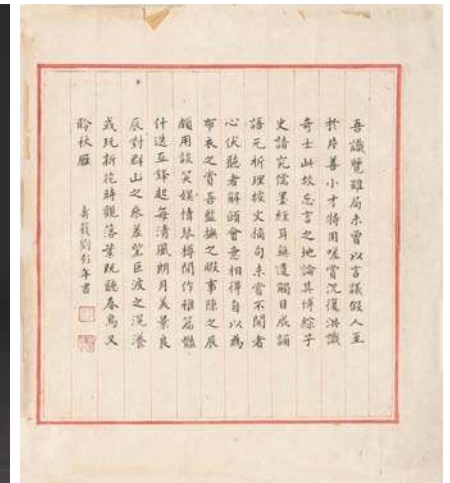 吾識覽雖局未曾以言議假人至
於片善小才特用嗟賞況復洪識
奇士此故忘言之地論其博綜子
史諳究儒墨經耳無遺觸目成誦
語元析理披文摘句未嘗不聞者
心伏聽者解頤會意相得自以為
布衣之賞吾監撫之暇事隙之辰
頗用談笑娛情琴樽間作雅篇豔
什迭互鋒起每清風朗月美景良
辰對群山之參差望巨波之滉瀁
或玩新花時觀落葉既聽春鳥又
聆秋雁
壽籛劉彭年書